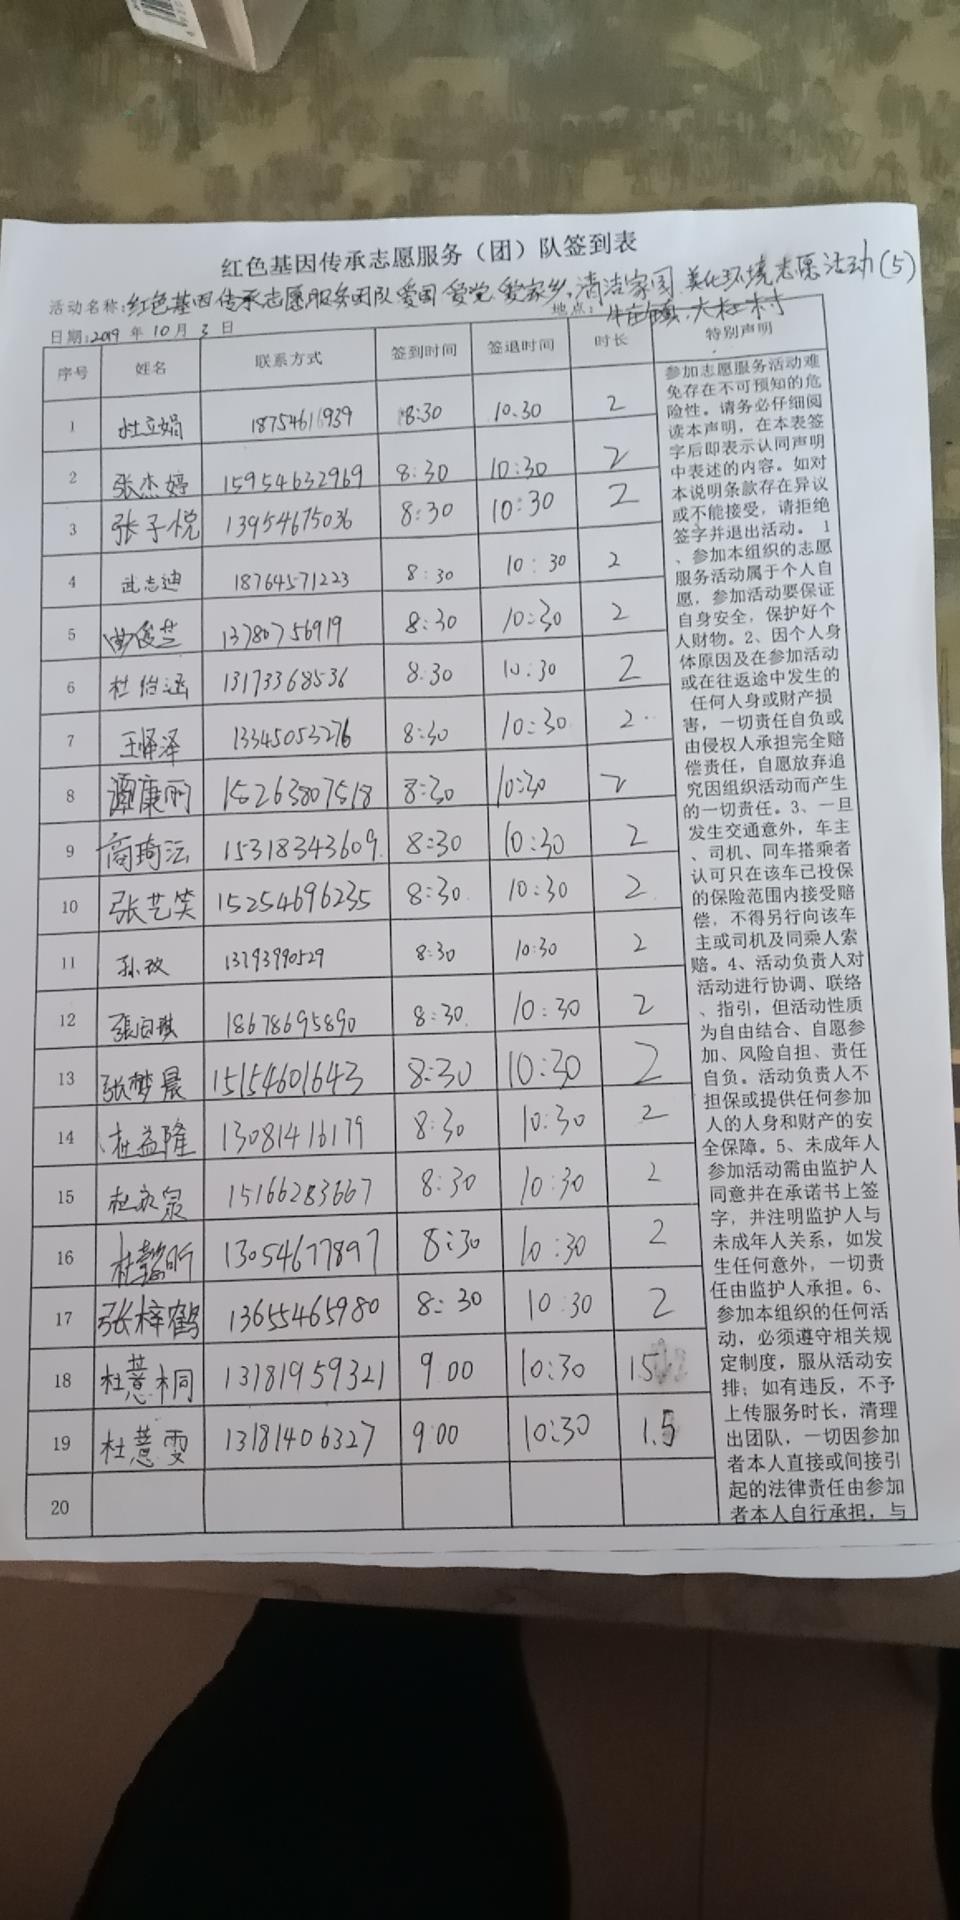 红色基因传承志愿服务（团）队签到表
活动名称:红色基因传承志愿服务团队爱国 爱党 爱家乡,清洁家园 美化环境志愿活动(5)
日期:2019 年 10 月 3 日 地点: 牛庄镇.大杜村
序号 姓名 联系方式 签到时间 签退时间 时长 特别声明
1 杜立娟 18754611939 8:30 10:30 2
2 张杰婷 15954632969 8:30 10:30 2
3 张子悦 13954675036 8:30 10:30 2
4 武志迪 18764571223 8:30 10:30 2
5 曲俊芝 13780756919 8:30 10:30 2
6 杜怡涵 13173368536 8:30 10:30 2
7 王怿泽 13345053276 8:30 10:30 2
8 谭康丽 15263807518 8:30 10:30 2
9 高琦沄 15318343609 8:30 10:30 2
10 张艺笑 15254696235 8:30 10:30 2
11 孙玫 13793990529 8:30 10:30 2
12 18678695890 8:30 10:30 2
13 张梦晨 15154601643 8:30 10:30 2
14 杜益隆 13081416179 8:30 10:30 2
15 杜永泉 15166283667 8:30 10:30 2
16 杜懿昕 13054677897 8:30 10:30 2
17 张梓鹤 13655465980 8:30 10:30 2
18 杜薏桐 13181959321 9:00 10:30 1.5
19 杜薏雯 13181406327 9:00 10:30 1.5
20
参加志愿服务活动难
免存在不可预知的危
险性。请务必仔细阅
读本声明，在本表签
字后即表示认同声明
中表述的内容。如对
本说明条款存在异议
或不能接受，请拒绝
签字并退出活动。 1
、参加本组织的志愿
服务活动属于个人自
愿，参加活动要保证
自身安全，保护好个
人财物。2、因个人身
体原因及在参加活动
或在往返途中发生的
任何人身或财产损
害，一切责任自负或
由侵权人承担完全赔
偿责任，自愿放弃追
究因组织活动而产生
的一切责任。3、一旦
发生交通意外，车主
、司机、同车搭乘者
认可只在该车已投保
的保险范围内接受赔
偿，不得另行向该车
主或司机及同乘人索
赔。4、活动负责人对
活动进行协调、联络
、指引，但活动性质
为自由结合、自愿参
加、风险自担、责任
自负。活动负责人不
担保或提供任何参加
人的人身和财产的安
全保障。5、未成年人
参加活动需由监护人
同意并在承诺书上签
字，并注明监护人与
未成年人关系，如发
生任何意外，一切责
任由监护人承担。6、
参加本组织的任何活
动，必须遵守相关规
定制度，服从活动安
排；如有违反，不予
上传服务时长，清理
出团队，一切因参加
者本人直接或间接引
起的法律责任由参加
者本人自行承担，与